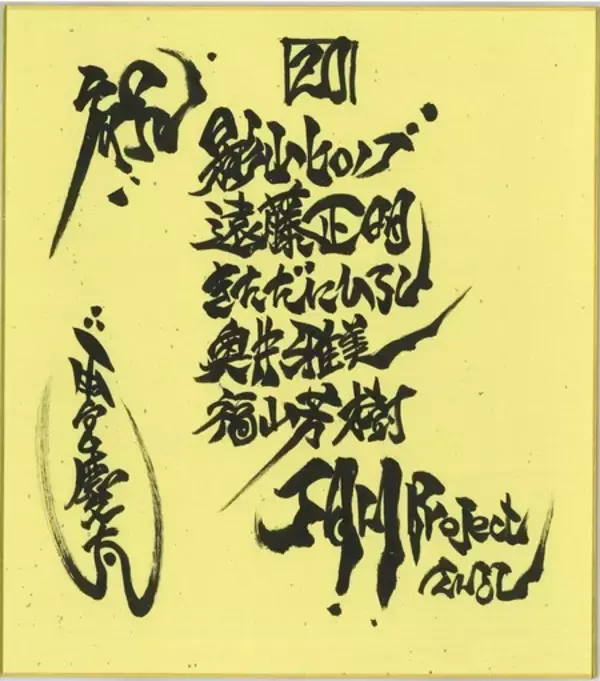 祝
20
影山ヒロノブ
遠藤正明
きただにひろし
奥井雅美
福山芳樹
JAM Project
さんえ